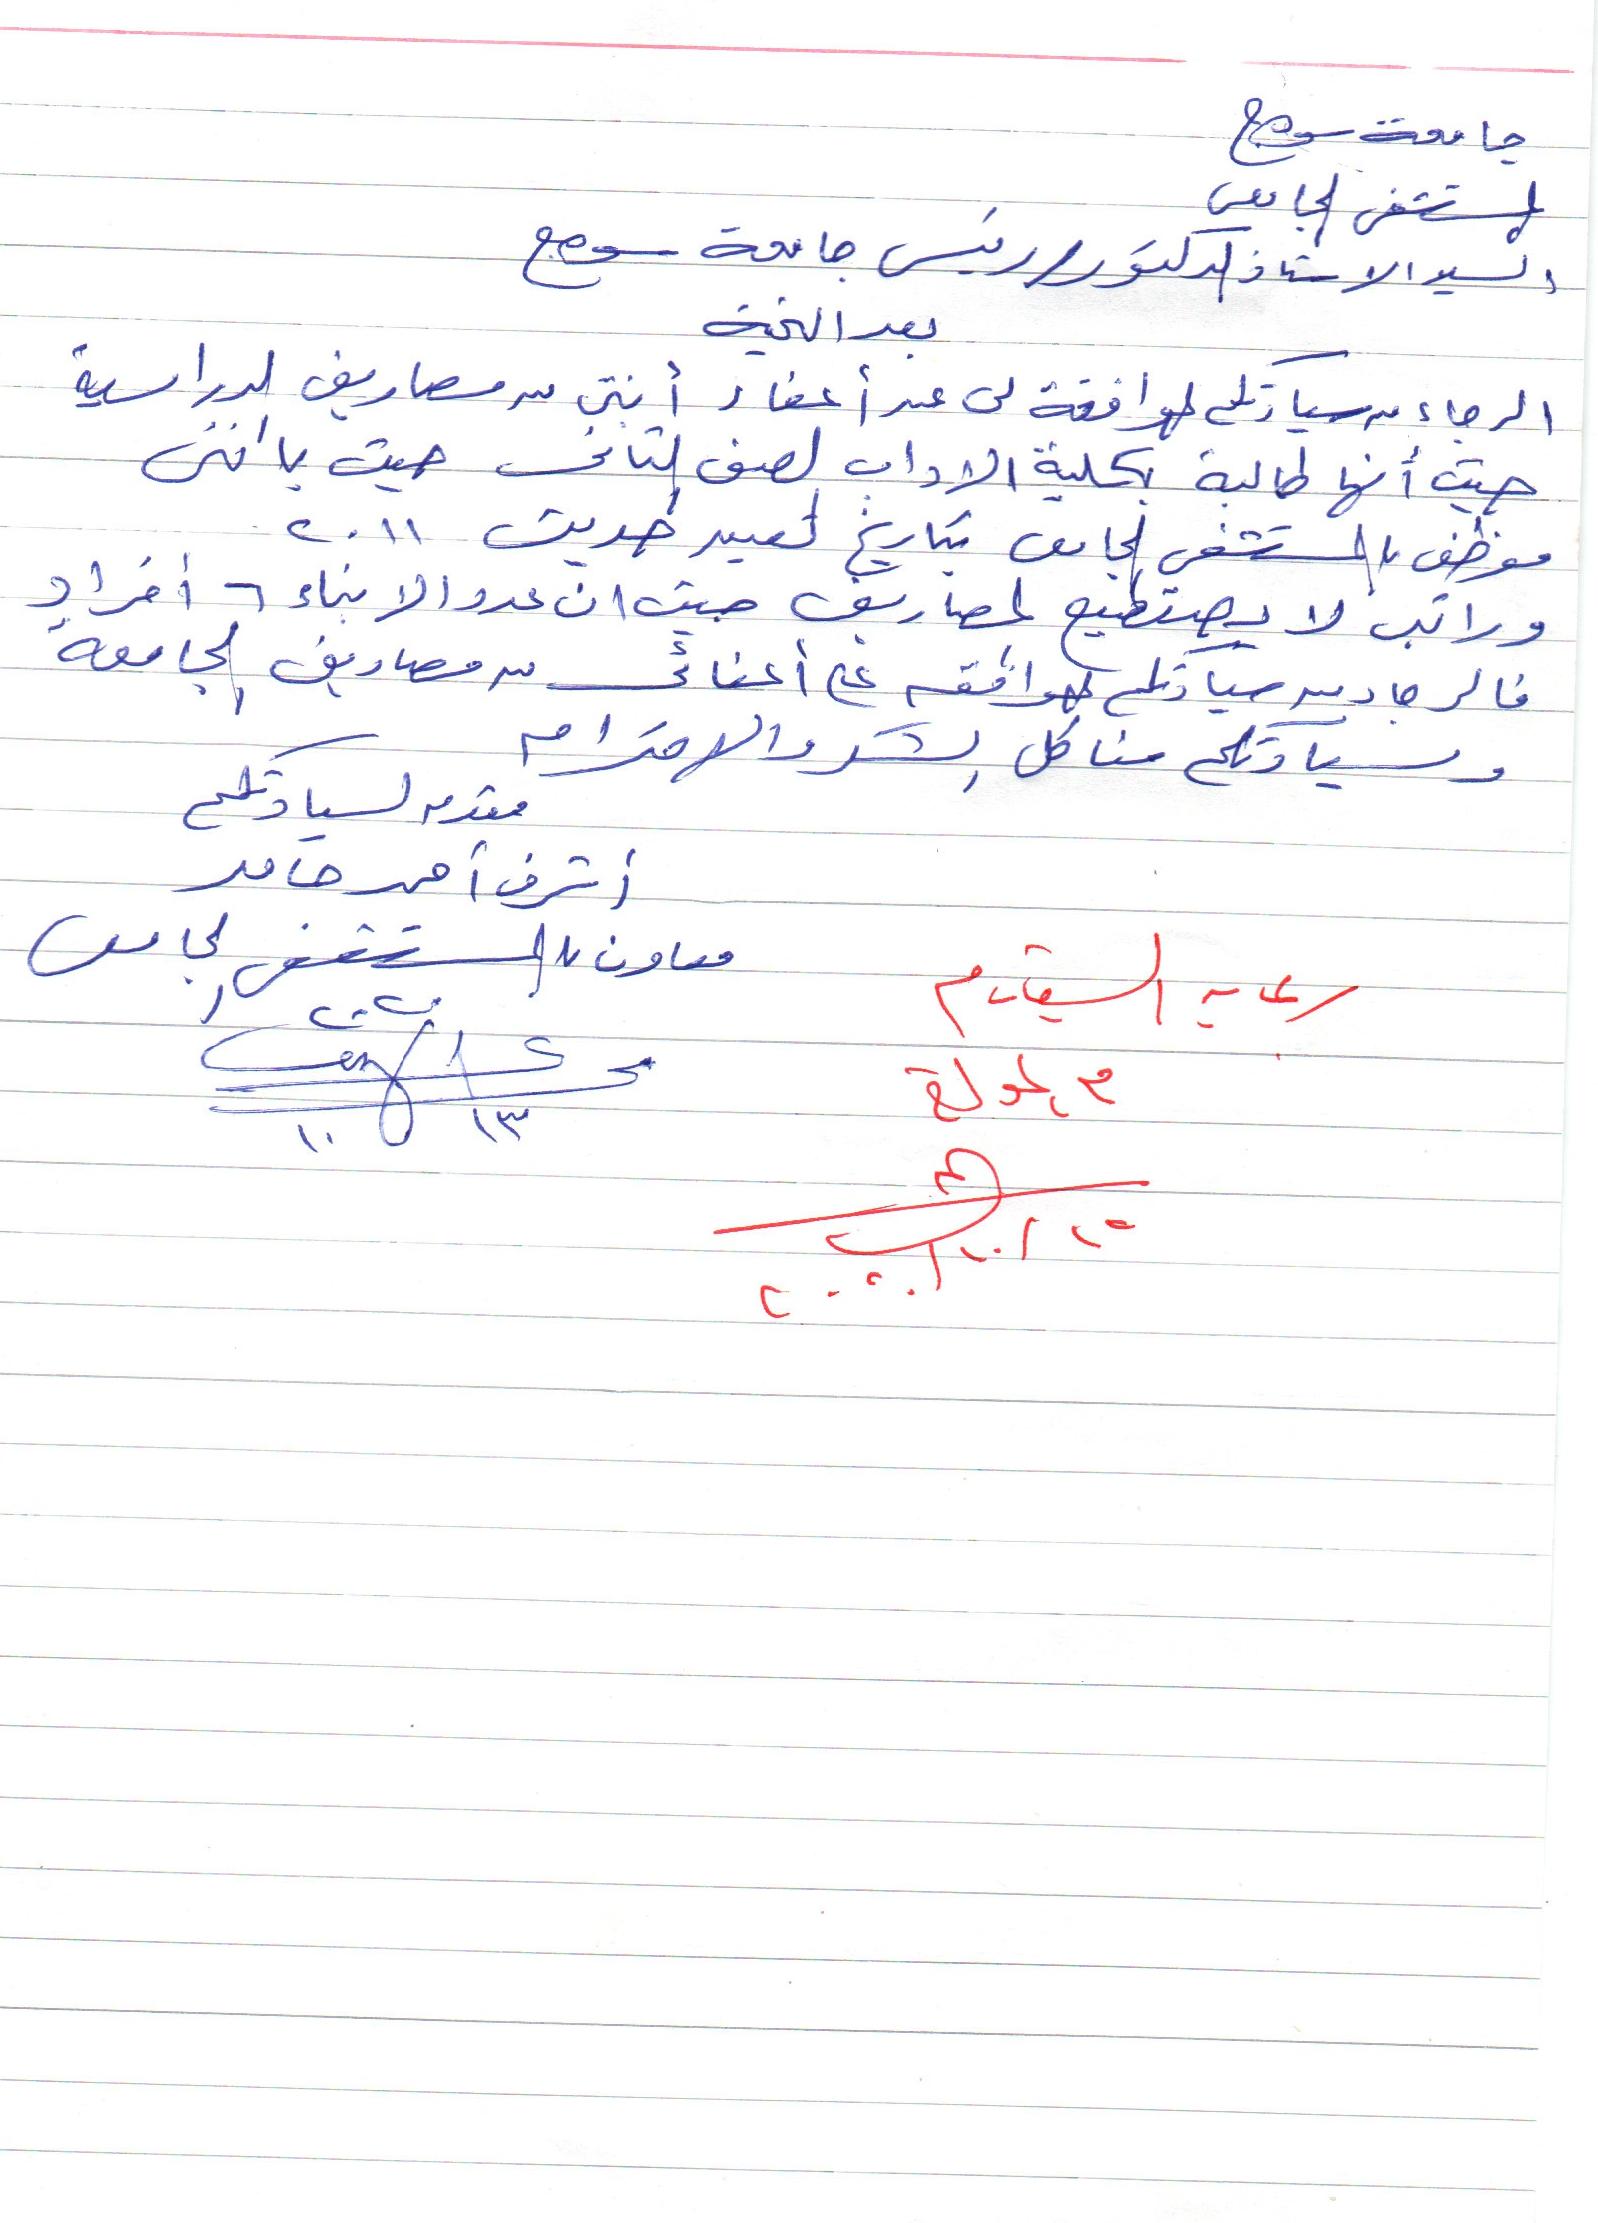 جامعة سوهاج
المستشفى الجامعى
السيد الاستاذ الدكتور / رئيس جامعة سوهاج
بعد التحية
الرجاء من سيادتكم الموافقة لى عن أعفاء أبنتى من مصاريف الدراسية
حيث أنها طالبة بكلية الاداب الصف الثانى حيث باننى
موظف بالمستشفى الجامعى بتاريخ تعيين حديث ٢٠١١
وراتب لا يستطيع المصاريف حيث ان عدد الابناء ٦ أفراد
فالرجاء من سيادتكم الموافقه على أعفائى من مصاريف الجامعة
وسيادتكم منا كل الشكر والاحترام
مقدمه لسيادتكم
أشرف أحمد حامد
معاون بالمستشفى الجامعى
رعاية
١٣
١٠